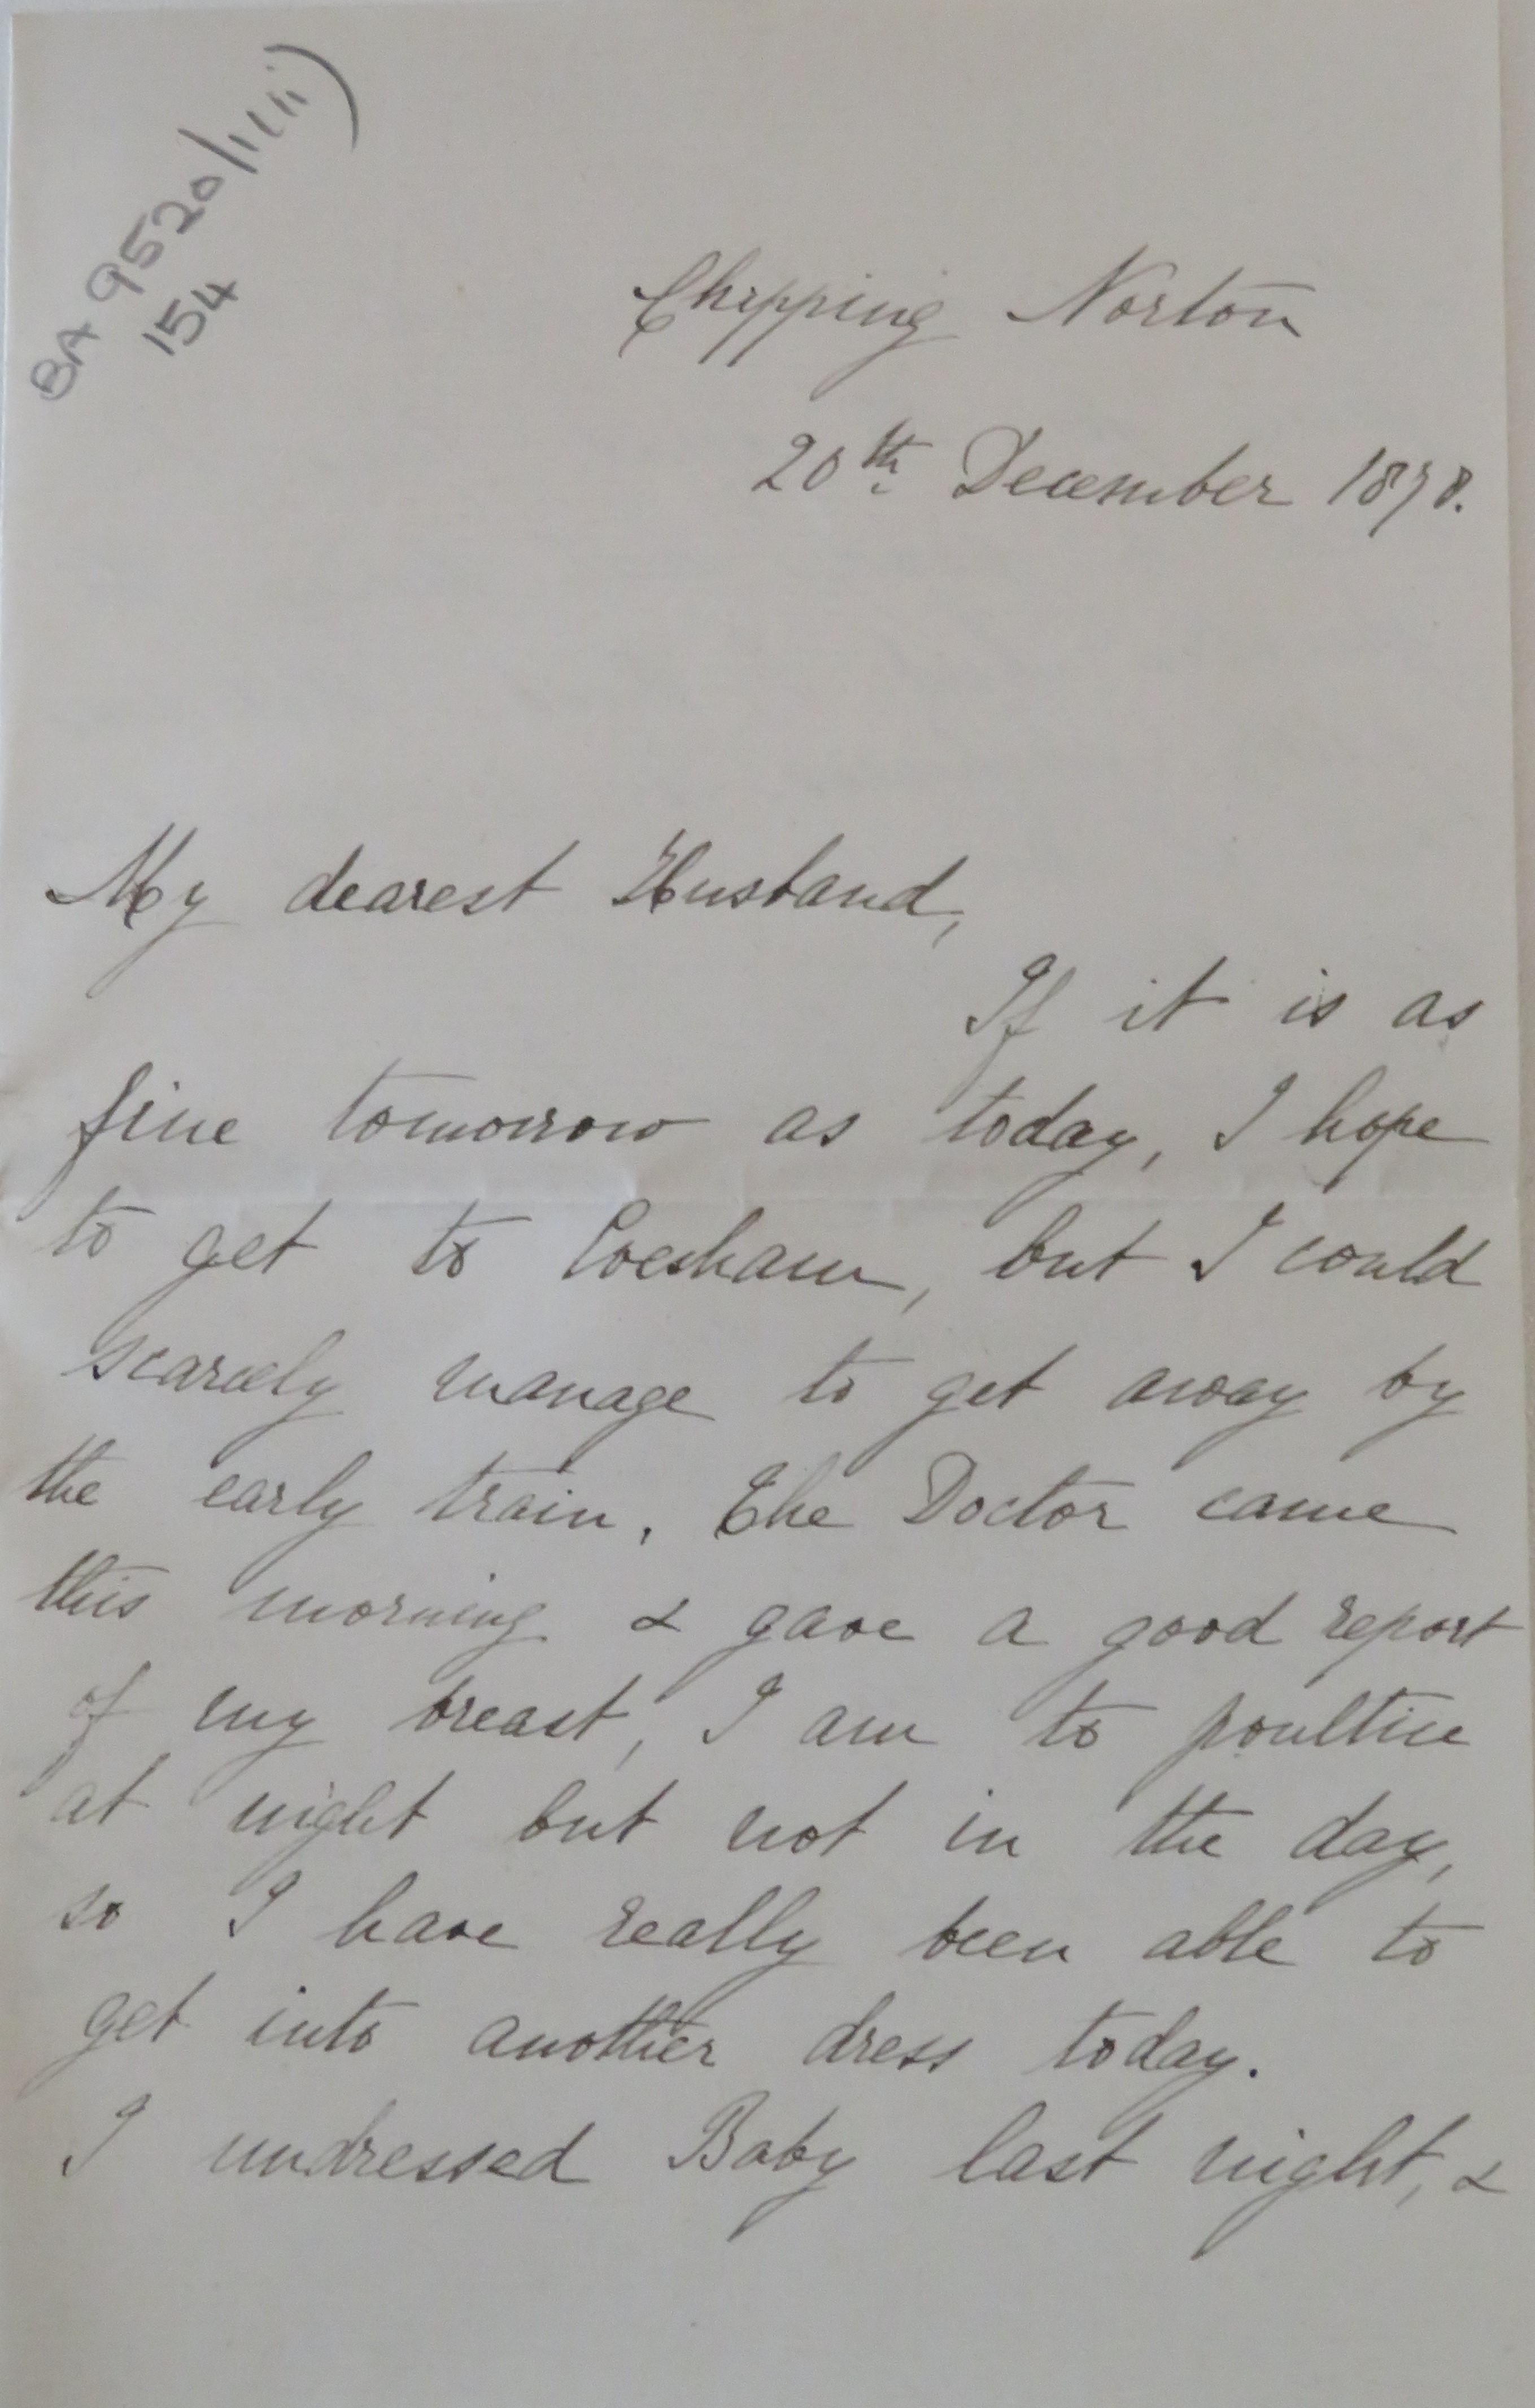 BA 9520/1(iii)
154
Chipping Norton
20th December 1878.
My dearest Husband,
If it is as
fine tomorrow as today, I hope
to get to Evesham, but I could
scarcely manage to get away by
the early train. The Doctor came
this morning & gave a good report
of my breast, I am to poultice
at night but not in the day,
so I have really been able to
get into another dress today.
I undressed Baby last night, &